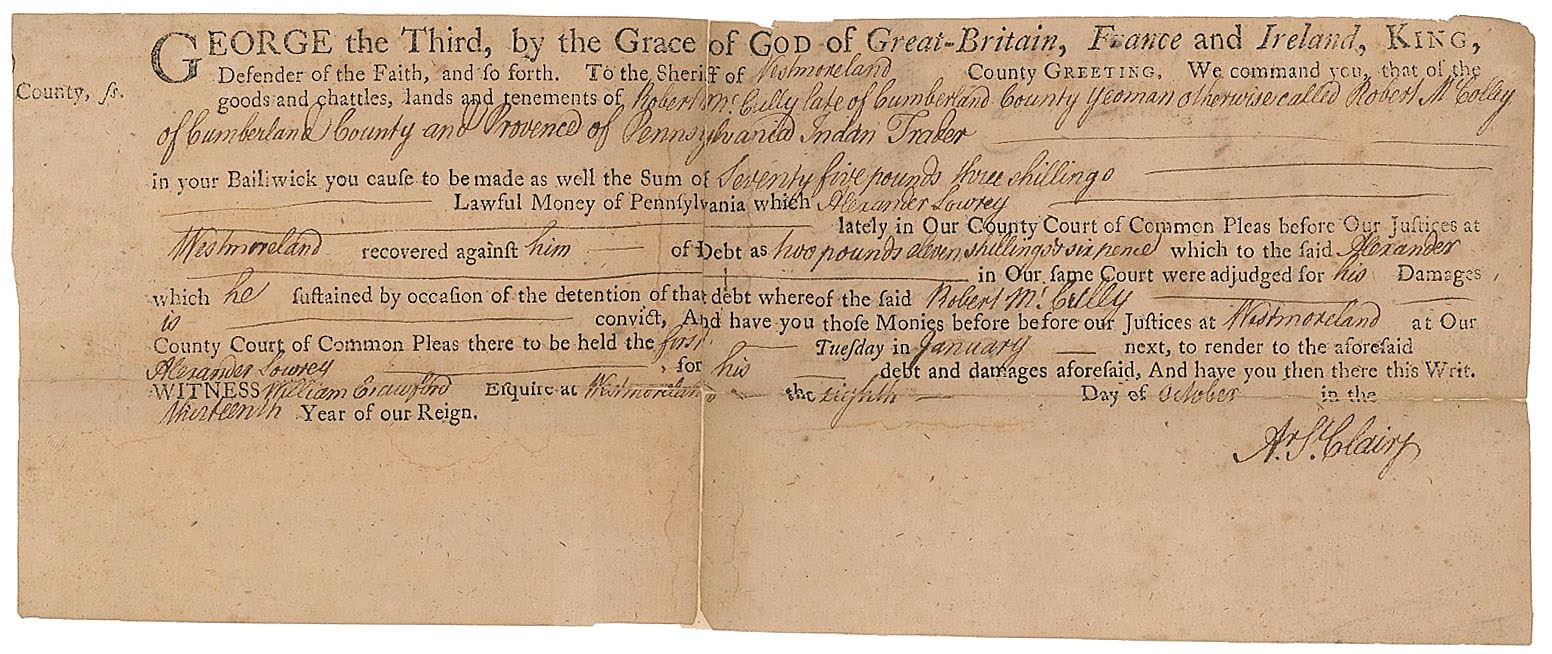 GEORGE the Third, by the Grace of GOD of Great-Britain, France and Ireland, KING,
Defender of the Faith, and ſo forth. To the Sheriff of Westmoreland County GREETING, We command you, that of the
County, ſs.
goods and chattles, lands and tenements of Robert Mc. Cully late of Cumberland County Yeoman otherwise called Robert Mc Colley
of Cumberland County and Provence of Pennsylvania Indan Trader
in your Bailiwick you cauſe to be made as well the Sum of Seventy five pounds three shillings
Lawful Money of Pennſylvania which Alexander Lowrey
lately in Our County Court of Common Pleas before Our Juſtices at
Westmoreland recovered againſt him of Debt as two pounds eleven shillings & six pence which to the ſaid Alexander
in Our ſame Court were adjudged for his Damages,
which he ſuſtained by occaſion of the detention of that debt whereof the ſaid Robert Mc. Cully
is convict, And have you thoſe Monies before before our Juſtices at Westmoreland at Our
County Court of Common Pleas there to be held the first Tueſday in January next, to render to the aforeſaid
Alexander Lowrey, for his debt and damages aforeſaid, And have you then there this Writ.
WITNESS William Crawford Eſquire at Westmoreland the eighth Day of October in the
thirteenth Year of our Reign.
Ar. St. Clair